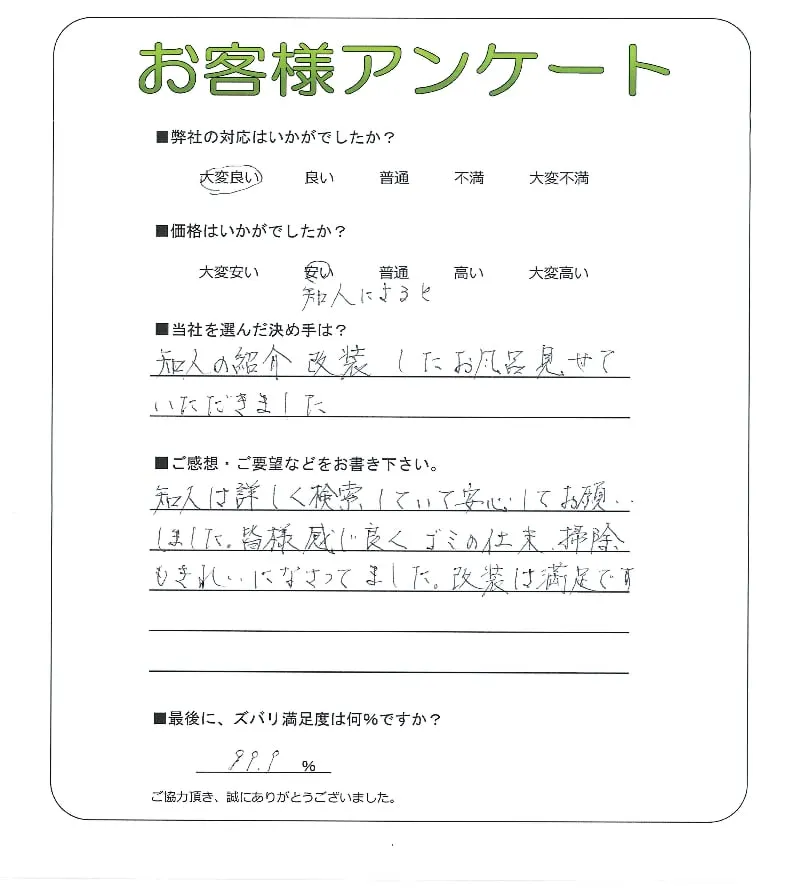 お客様アンケート
■弊社の対応はいかがでしたか？
大変良い 良い 普通 不満 大変不満
■価格はいかがでしたか？
大変安い 安い 普通 高い 大変高い
知人によると
■当社を選んだ決め手は？
知人の紹介 改装したお風呂見せて
いただきました
■ご感想・ご要望などをお書き下さい。
知人は詳しく検索していて安心してお願い
しました。皆様感じ良くゴミの仕末、掃除
もきれいになさってました。改装は満足です
■最後に、ズバリ満足度は何％ですか？
99.9 %
ご協力頂き、誠にありがとうございました。